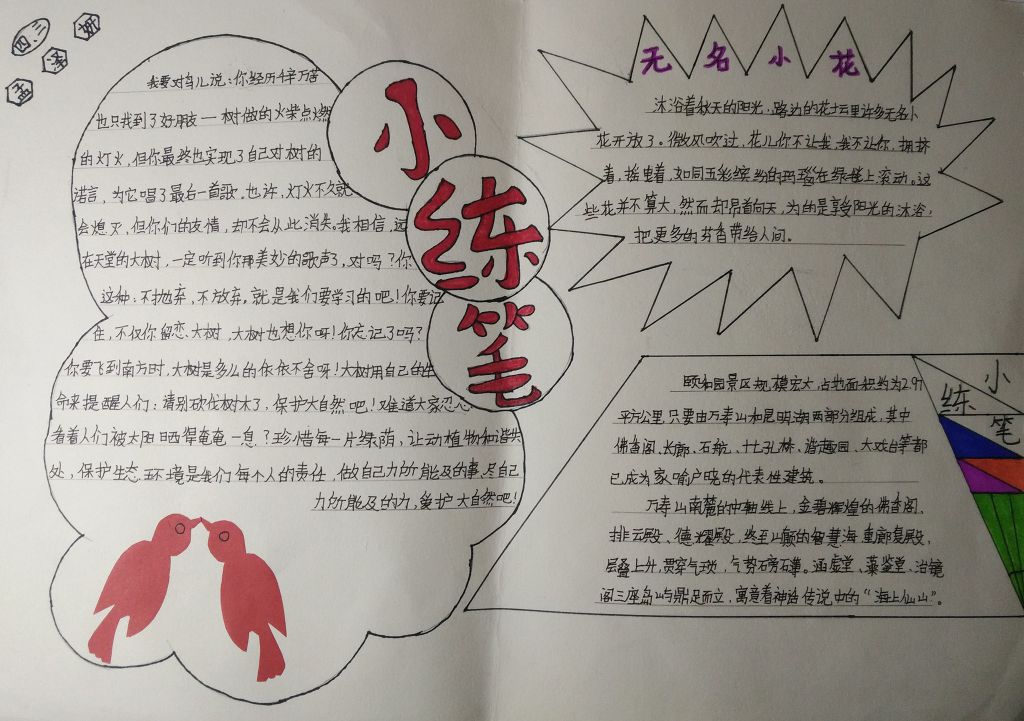 四.三
孟
泽
妍
小
练
笔
我要对鸟儿说：你经历千辛万苦
也只找到了好朋友——树做的火柴点燃
的灯火，但你最终也实现了自己对树的
诺言，为它唱了最后一首歌。也许，灯火不久就
会熄灭，但你们的友情，却不会从此消失。我相信，远
在天堂的大树，一定听到你那美妙的歌声了，对吗？你
这种：不抛弃，不放弃，就是我们要学习的吧！你要记
住，不仅你留恋大树，大树也想你呀！你忘记了吗？
你要飞到南方时，大树是多么的依依不舍呀！大树用自己的生
命来提醒人们：请别砍伐树木了，保护大自然吧！难道大家忍心
看着人们被太阳晒得奄奄一息？珍惜每一片绿荫，让动植物和谐共
处，保护生态环境是我们每个人的责任，做自己力所能及的事，尽自己
力所能及的力，爱护大自然吧！
无名小花
沐浴着秋天的阳光，路边的花坛里许多无名小
花开放了。微风吹过，花儿你不让我，我不让你，拥挤
着，摇曳着，如同五彩缤纷的玛瑙在绿毯上滚动。这
些花并不算大，然而却昂首向天，为的是享受阳光的沐浴，
把更多的芬香带给人间。
小
练
笔
颐和园景区规模宏大，占地面积约为2.97
平方公里，只要由万寿山和昆明湖两部分组成，其中
佛香阁、长廊、石舫、十七孔桥、谐趣园、大戏台等都
已成为家喻户晓的代表性建筑。
万寿山南麓的中轴线上，金碧辉煌的佛香阁、
排云殿、德耀殿，终至山巅的智慧海，重廊复殿，
层叠上升，贯穿气琐，气势磅礴。涵虚堂、藻鉴堂、治镜
阁三座岛屿鼎足而立，寓意着神话传说中的“海上仙山”。